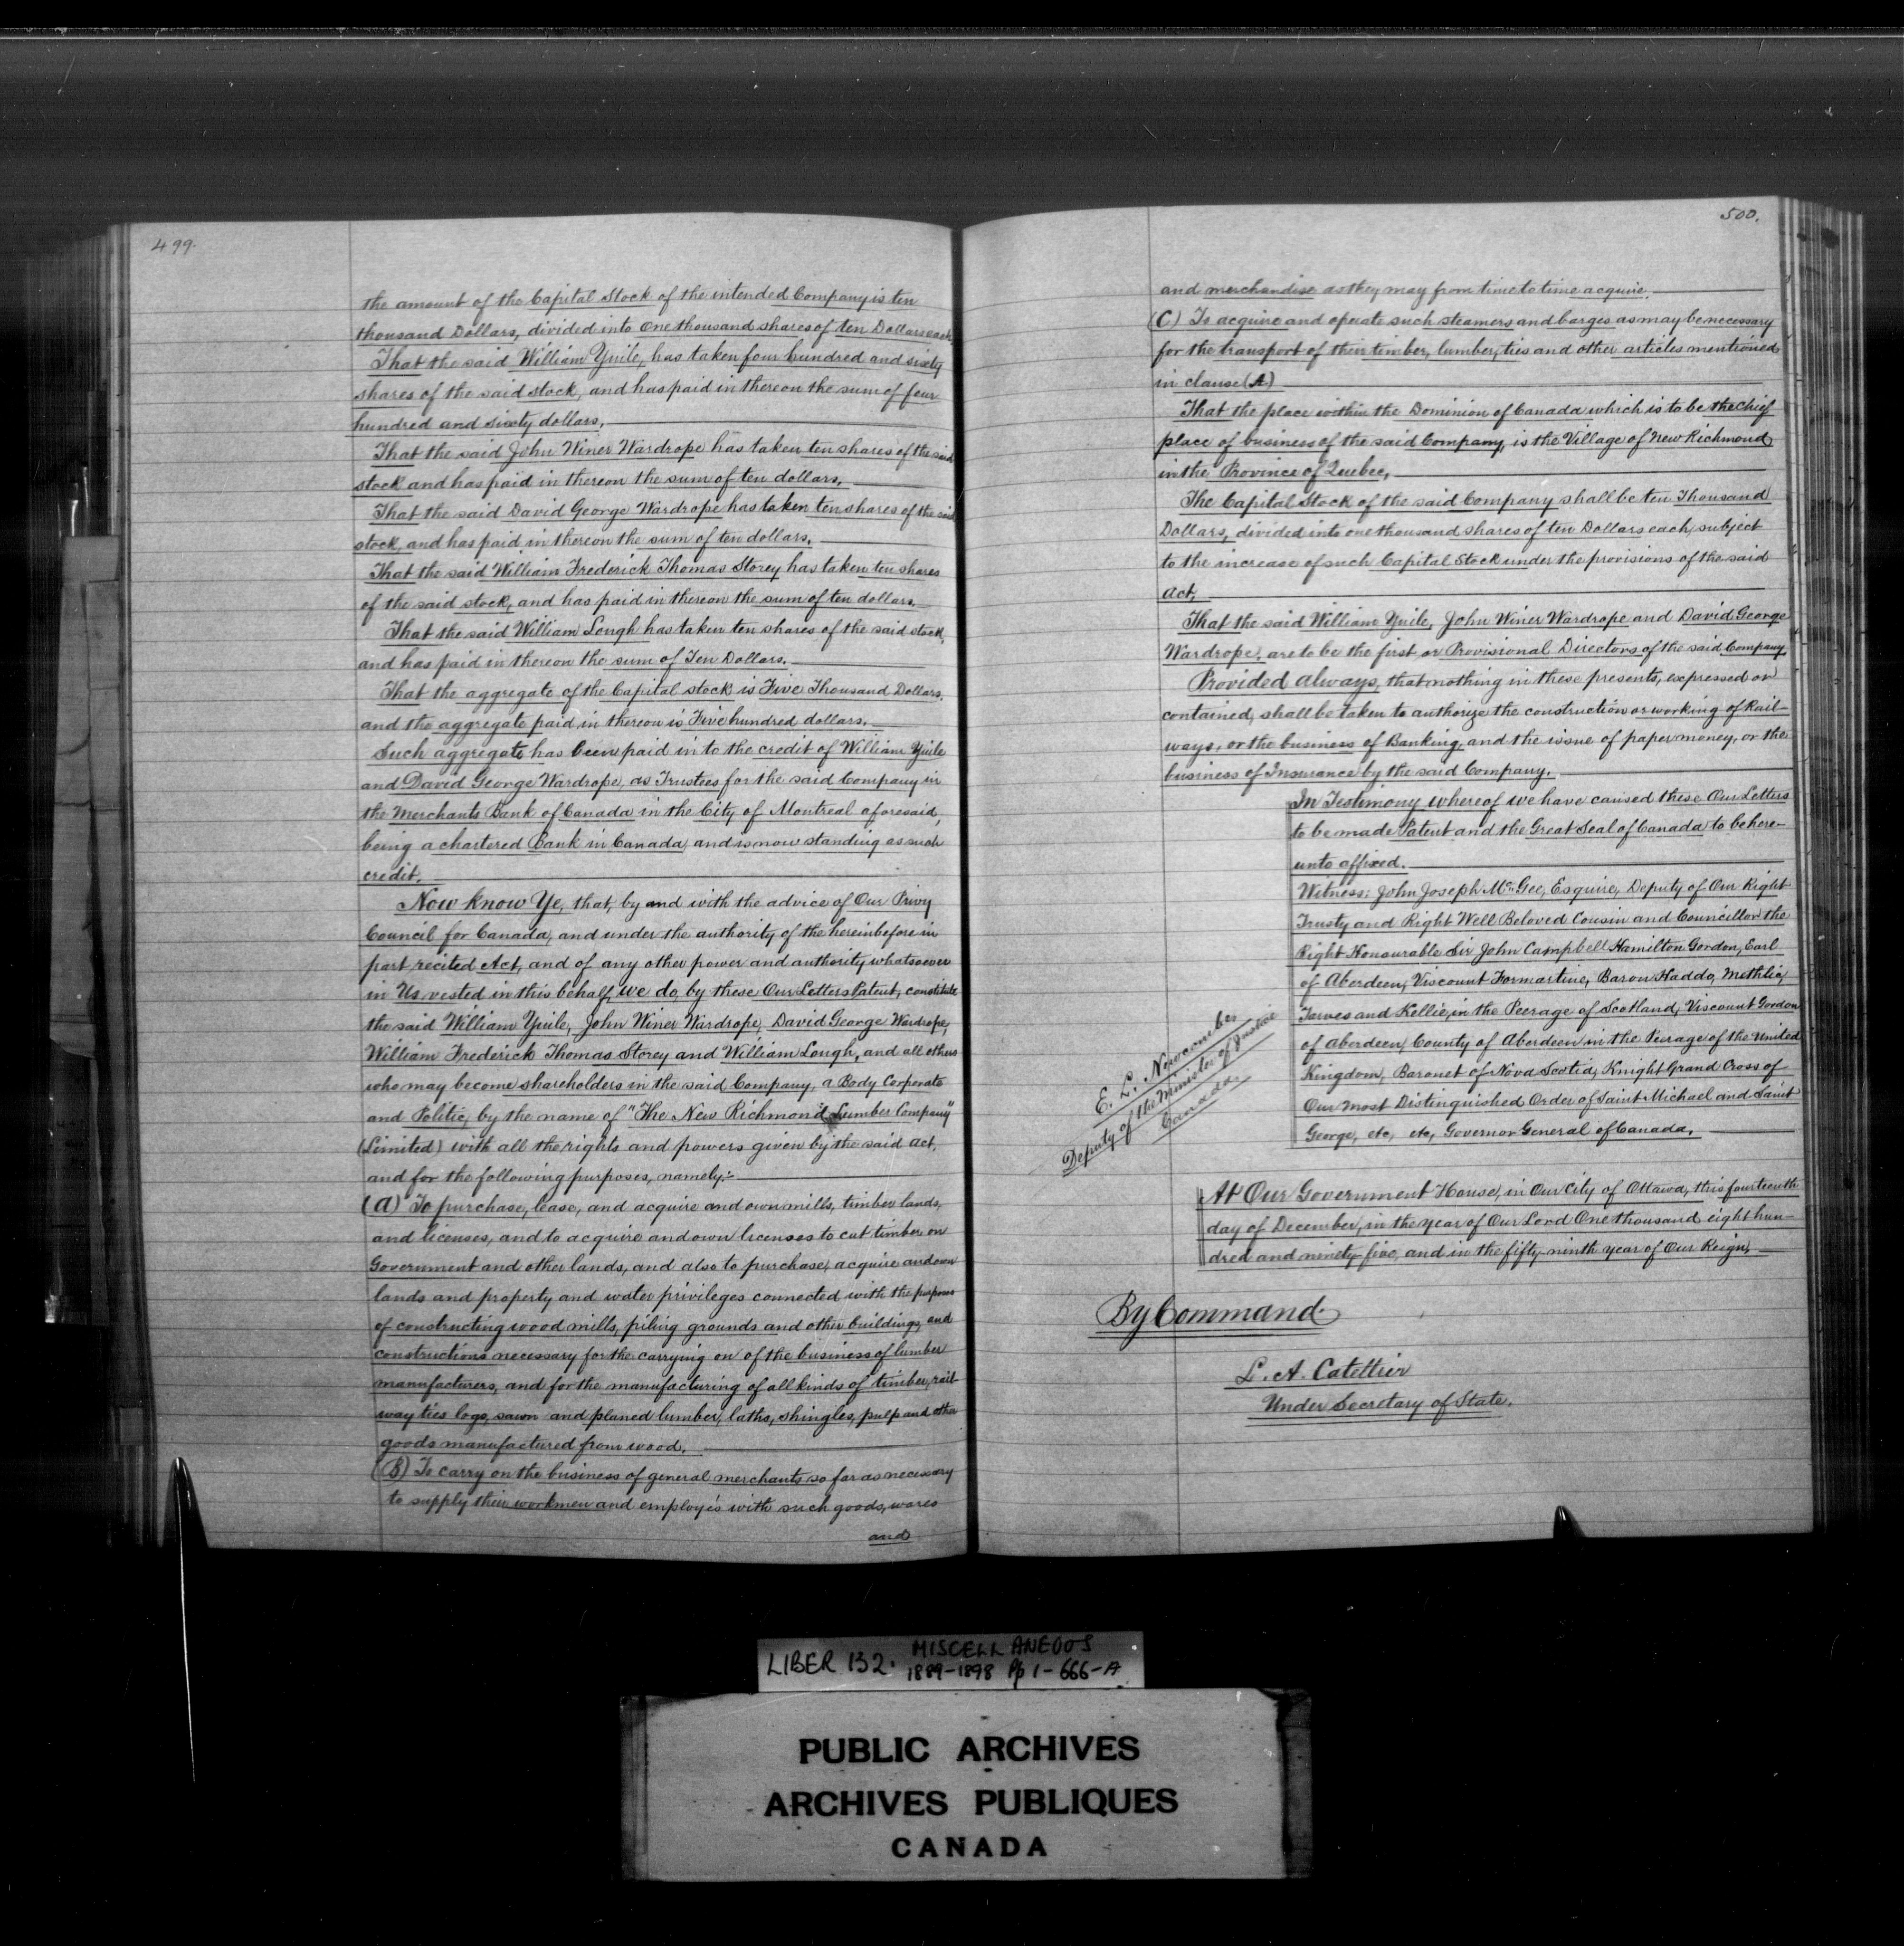 499.
the amount of the Capital Stock of the intended Company is ten
thousand Dollars, divided into One thousand shares of ten Dollars each,
That the said William Yuile, has taken four hundred and sixty
shares of the said stock, and has paid in thereon the sum of four
hundred and sixty dollars,
That the said John Winer Wardrope has taken ten shares of the said
stock and has paid in thereon the sum of ten dollars,
That the said David George Wardrope has taken ten shares of the said
stock, and has paid in thereon the sum of ten dollars,
That the said William Frederick Thomas Storey has taken ten shares
of the said stock, and has paid in thereon the sum of ten dollars,
That the said William Lough has taken ten shares of the said stock,
and has paid in thereon the sum of Ten Dollars.
That the aggregate of the Capital stock is Five Thousand Dollars,
and the aggregate paid in thereon is Five hundred dollars.
Such aggregate has been paid in to the credit of William Yuile
and David George Wardrope, as Trustees for the said Company in
the Merchants Bank of Canada in the City of Montreal aforesaid,
being a chartered Bank in Canada, and is now standing as such
credit.
Now know Ye, that, by and with the advice of Our Privy
Council for Canada, and under the authority of the hereinbefore in
part recited Act, and of any other power and authority whatsoever
in Us vested in this behalf, We do, by these Our Letters Patent, constitute
the said William Yuile, John Winer Wardrope, David George Wardrope,
William Frederick Thomas Storey and William Lough, and all others
who may become shareholders in the said Company, a Body Corporate
and Politic, by the name of "The New Richmond Lumber Company"
(Limited) with all the rights and powers given by the said Act,
and for the following purposes, namely:-
(A) To purchase, lease, and acquire and own mills, timber lands,
and licenses, and to acquire and own licenses to cut timber on
Government and other lands, and also to purchase, acquire and own
lands and property and water privileges connected with the purposes
of constructing wood mills, piling grounds and other buildings and
constructions necessary for the carrying on of the business of lumber
manufacturers, and for the manufacturing of all kinds of timber, rail-
way ties logs, sawn and planed lumber, laths, shingles, pulp and other
goods manufactured from wood.
(B) To carry on the business of general merchants so far as necessary
to supply their workmen and employés with such goods, wares
and
500.
and merchandise as they may from time to time acquire.
(C) To acquire and operate such steamers and barges as may be necessary
for the transport of their timber, lumber, ties and other articles mentioned
in clause (A)
That the place within the Dominion of Canada which is to be the chief
place of business of the said Company, is the Village of New Richmond
in the Province of Quebec,
The Capital Stock of the said Company shall be ten Thousand
Dollars, divided into one thousand shares of ten Dollars each, subject
to the increase of such Capital Stock under the provisions of the said
Act,
That the said William Yuile, John Winer Wardrope and David George
Wardrope, are to be the first or Provisional Directors of the said Company,
Provided always, that nothing in these presents, expressed or
contained, shall be taken to authorize the construction or working of Rail-
ways, or the business of Banking, and the issue of paper money, or the
business of Insurance by the said Company.
In Testimony whereof we have caused these Our Letters
to be made Patent and the Great Seal of Canada to be here-
unto affixed.
Witness: John Joseph McGee, Esquire, Deputy of Our Right
Trusty and Right Well Beloved Cousin and Councillor the
Right Honourable Sir John Campbell Hamilton Gordon, Earl
of Aberdeen, Viscount Formartine, Baron Haddo, Methlic,
Tarves and Kellie, in the Peerage of Scotland, Viscount Gordon
of Aberdeen, County of Aberdeen in the Peerage of the United
Kingdom, Baronet of Nova Scotia, Knight Grand Cross of
Our Most Distinguished Order of Saint Michael and Saint
George, etc, etc, Governor General of Canada,
E. L. Newcomber
Deputy of the Minister of Justice
Canada.
At Our Government House, in Our City of Ottawa, this fourteenth
day of December, in the year of Our Lord One thousand eight hun-
dred and ninety-five, and in the fifty-ninth year of Our Reign,
By Command
L. A. Catellier
Under Secretary of State.
LIBER 132. MISCELLANEOUS
1889-1898 Pp 1-666-A
PUBLIC ARCHIVES
ARCHIVES PUBLIQUES
CANADA